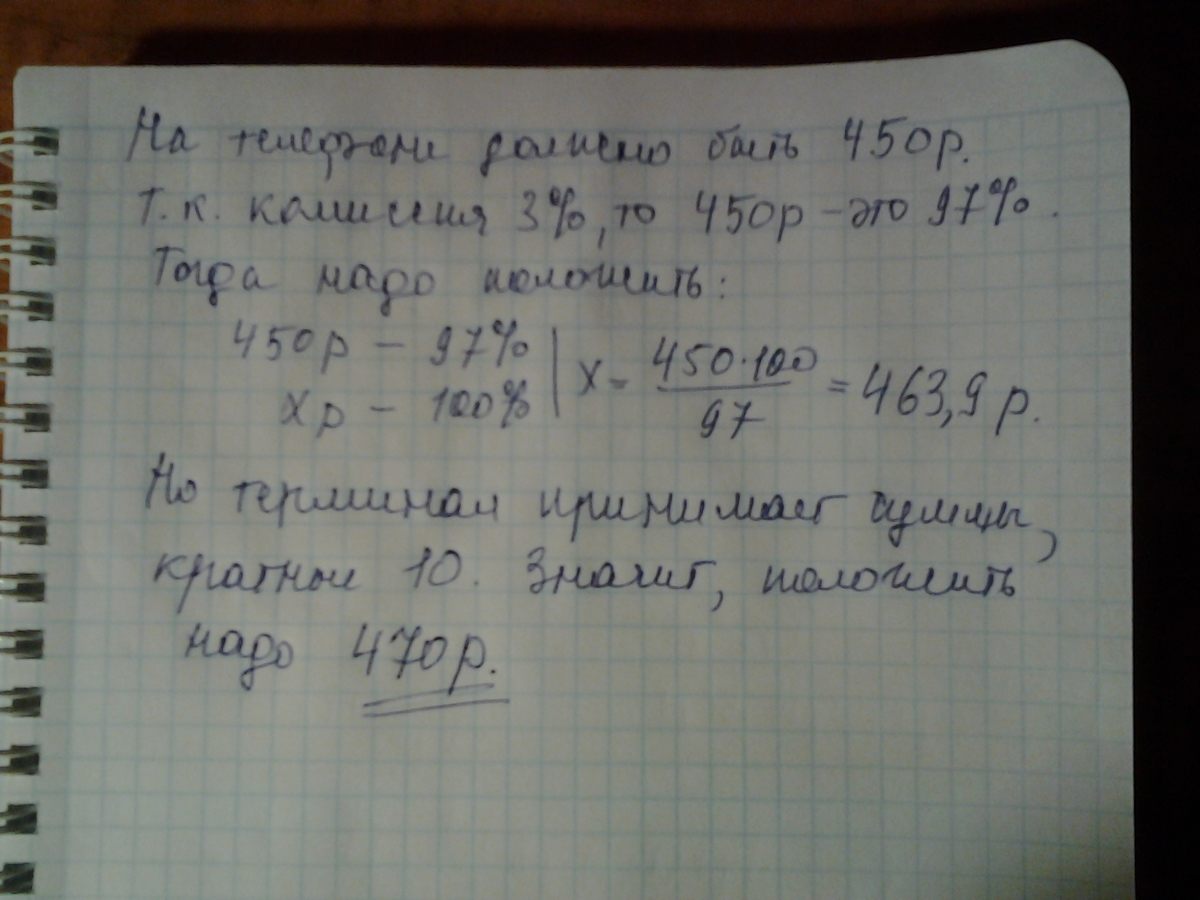 На телефоне должно быть 450р.
Т.к. комиссия 3%, то 450р – это 97%.
Тогда надо положить:
450р – 97% | x = 450·100 / 97 = 463,9 р.
xр – 100%
Но терминал принимает суммы,
кратные 10. Значит, положить
надо 470р.